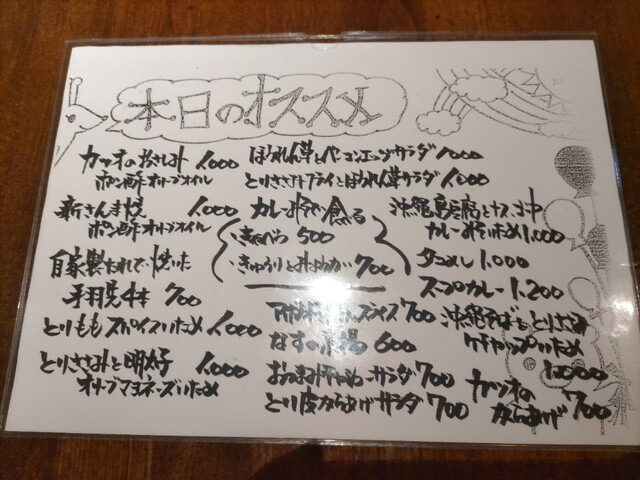 本日のオススメ
カツオのおさしみ 1,000
ポン酢オリーブオイル
新さんま焼 1,000
ポン酢オリーブオイル
自家製たれで焼いた
手羽先4本 700
とりももスパイスいため 1,000
とりささみと明太子 1,000
オリーブマヨネーズいため
ほうれん草とベーコンエッグサラダ 1,000
とりささみフライとほうれん草サラダ 1,000
カレーみそで食べる
きゃべつ 500
きゅうりとみょうが 700
スライス 700
なすの 600
サラダ 700
とり皮からあげサラダ 700
沖縄島豆腐とナス、
カレーみそいため 1,000
タコめし 1,000
スープカレー 1,200
沖縄そばととりささみ
ケチャップいため
1,000
カツオの
からあげ 700